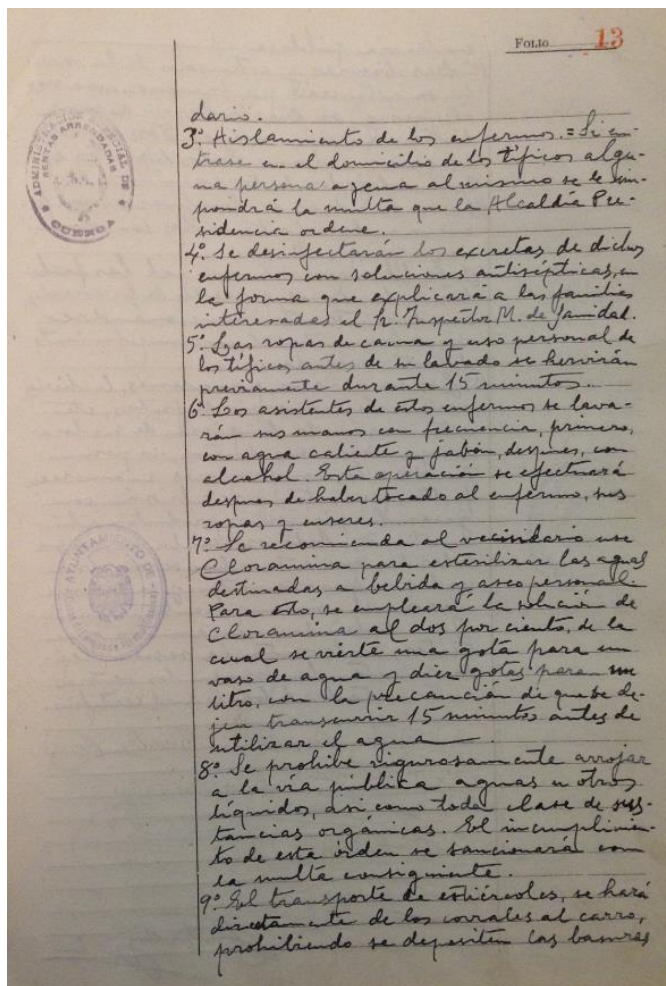 FOLIO 13
ADMINISTRACION ESPECIAL DE
RENTAS ARRENDADAS
CUENCA
AYUNTAMIENTO DE
dario.
3º. Aislamiento de los enfermos. = Si en-
trase en el domicilio de los tíficos algu-
na persona agena al mismo se le im-
pondrá la multa que la Alcaldía Pre-
sidencia ordene.
4º. Se desinfectarán los excretas de dichos
enfermos con soluciones antisépticas, en
la forma que explicará a las familias
interesadas el Sr. Inspector M. de Sanidad.
5º. Las ropas de cama y uso personal de
los tíficos antes de su lavado se hervirán
previamente durante 15 minutos.
6º. Los asistentes de estos enfermos se lava-
rán sus manos con frecuencia, primero,
con agua caliente y jabón, despues, con
alcohol. Esta operación se efectuará
despues de haber tocado al enfermo, sus
ropas y enseres.
7º. Se recomienda al vecindario use
Cloramina para esterilizar las aguas
destinadas a bebida y aseo personal.
Para esto, se empleará la solución de
Cloramina al dos por ciento, de la
cual se vierte una gota para un
vaso de agua y diez gotas para un
litro, con la precaución de que se de-
jen transcurrir 15 minutos antes de
utilizar el agua
8º. Se prohibe rigurosamente arrojar
a la vía pública aguas u otros
líquidos, asi como toda clase de sus-
tancias orgánicas. El incumplimien-
to de esta orden se sancionará con
la multa consiguiente.
9º. El transporte de estiércoles, se hará
directamente de los corrales al carro,
prohibiendo se depositen las basuras